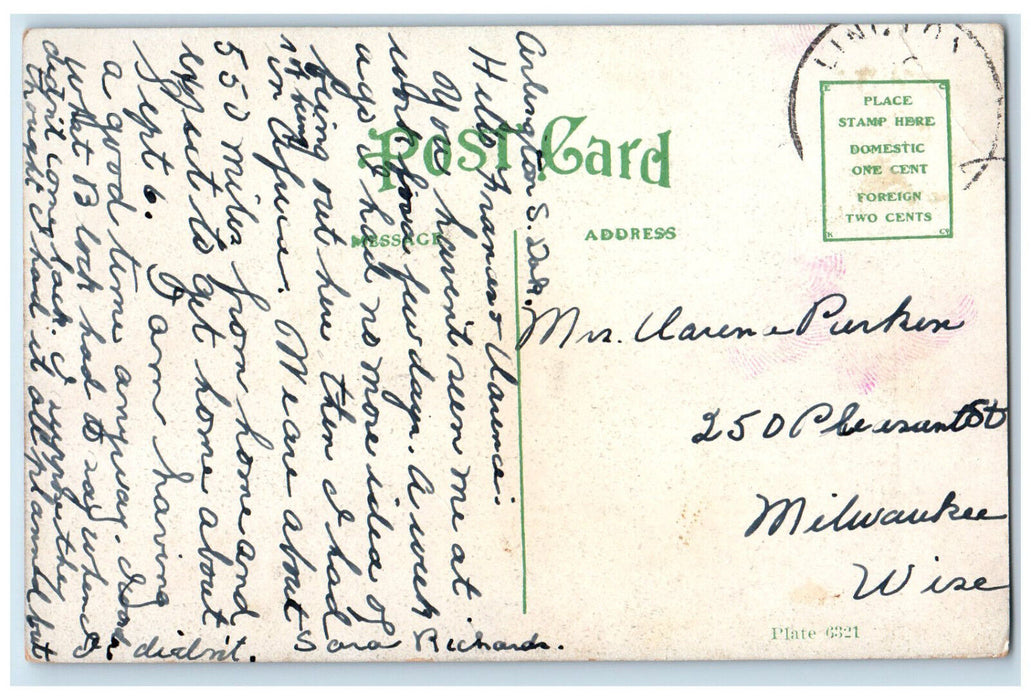 Post Card
MESSAGE
ADDRESS
PLACE
STAMP HERE
DOMESTIC
ONE CENT
FOREIGN
TWO CENTS
Arlington S. Dak.
Hulo Frances & Clarence.
You havent seen me at
work for a few days. A week
ago I had no more idea of
being out here then I had
of being
in Africa. We are about
550 miles from home and
expect to get home about
Sept 6. I am having
a good time anyway. Does
what B lock had to say when I
didn't come back. I suppose they
thought I had it all planned but
I didn't.
Sara Richards.
Mrs. Clarence Perken
250 Pleasant St
Milwaukee
Wisc
Plate 6321